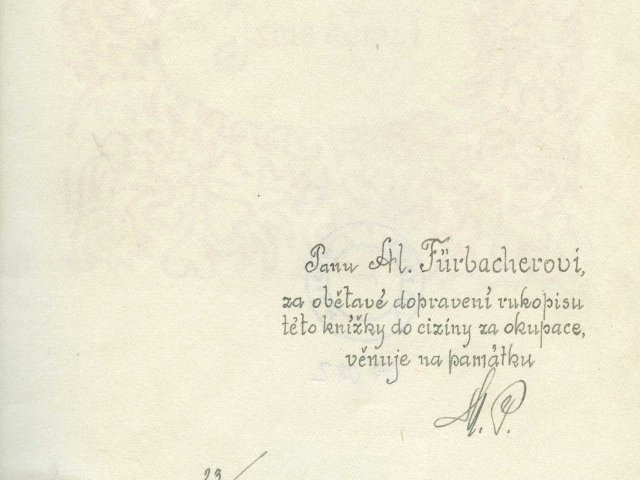 Panu Al. Fürbacherovi,
za obětavé dopravení rukopisu
této knížky do ciziny za okupace,
věnuje na památku
M. P.
23/